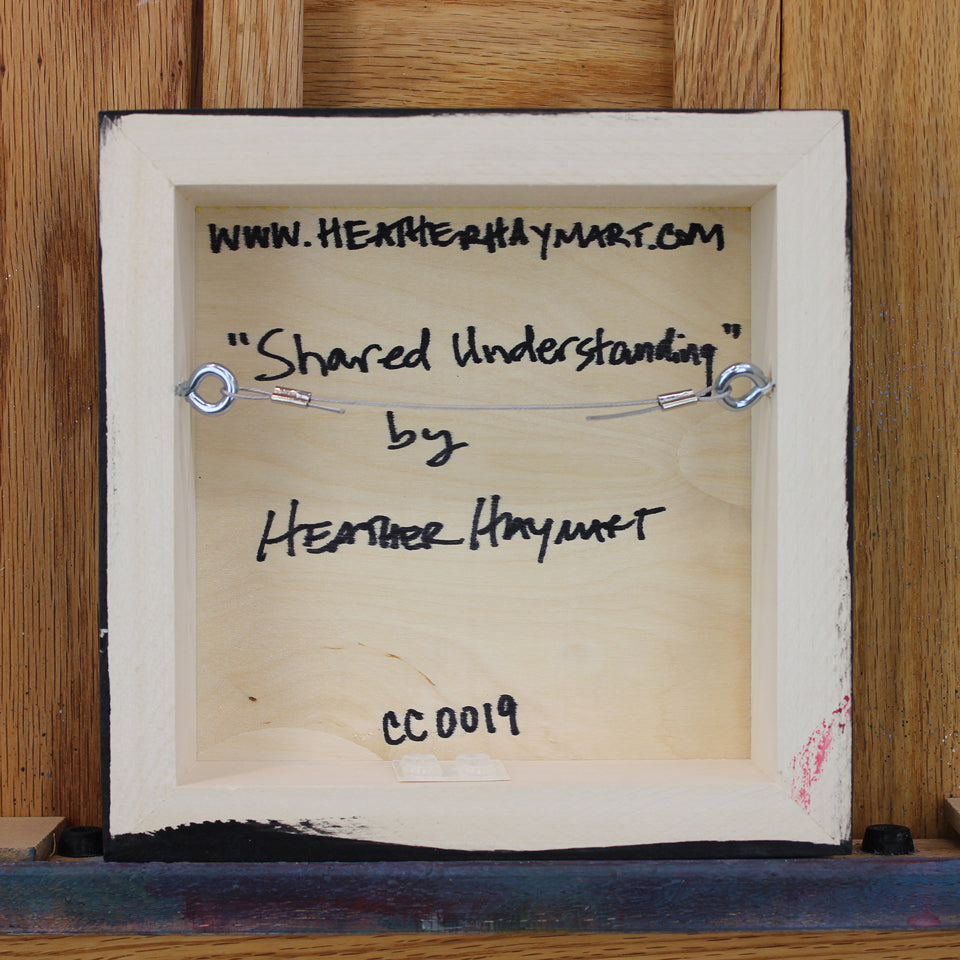 WWW.HEATHERHAYMART.COM
"Shared Understanding"
by
HEATHER HAYMART
CC0019